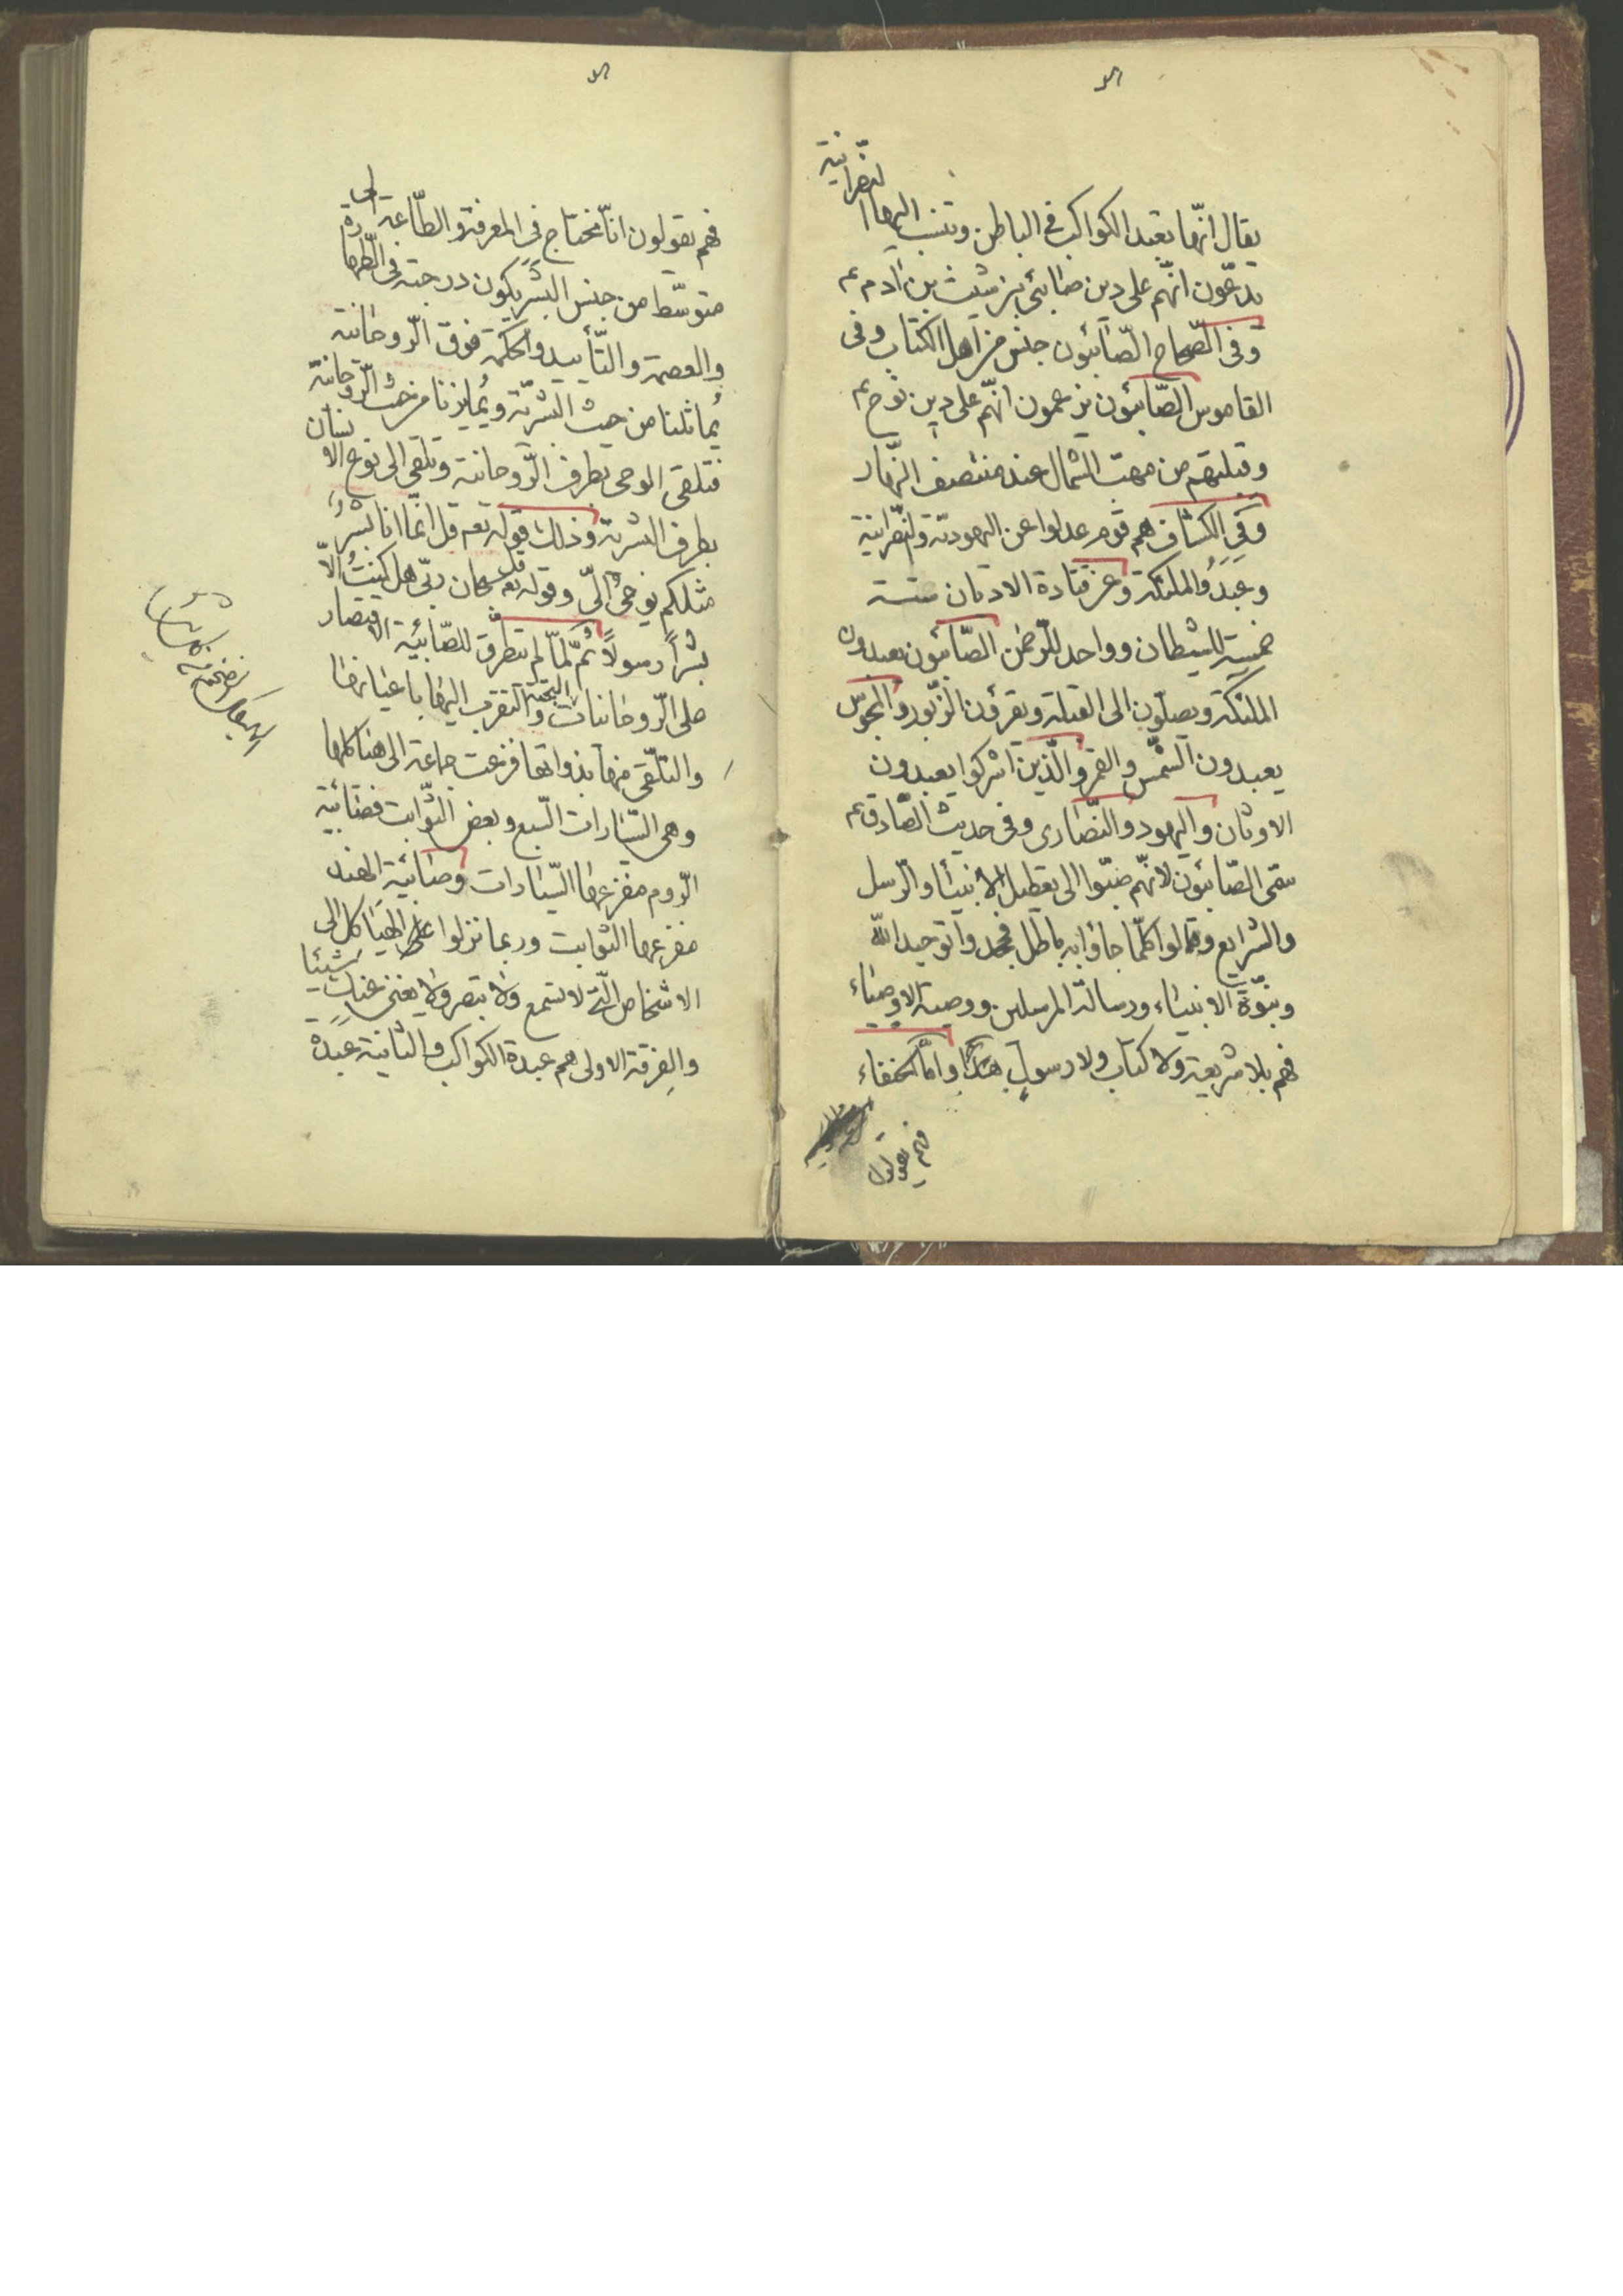 يقال انّها تعبد الكواكب فى الباطن وتنسب اليها النصّرانيّة
يدّعون انّهم على دين صابئى بن شيث بن آدم ع
وفى الصّحاح الصّابئون جنس من اهل الكتاب وفى
القاموس الصّابئون يزعمون انّهم على دين نوح ع
وقبلتهم من مهبّ الشمال عند منتصف النّهار
وفى الكشاف هم قوم عدلوا عن اليهوديّة والنصّرانية
وعبدوا الملئكة وعن قتادة الاديان ستة
خمسة للشيطان وواحد للرّحمن الصّابئون يعبدون
الملئكة ويصلّون الى القبلة ويقرؤن الزّبور والمجوس
يعبدون الشّمس والقمر والّذين اشركوا يعبدون
الاوثان واليهود والنّصارى وفى حديث الصّادق ع
سمّى الصّابئون لانّهم صبّوا الى تعطيل الانبيأ والرّسل
والشرايع وقالوا كلّما جاؤا به باطل فجحدوا توحيد الله
ونبوّة الانبياء ورسالة المرسلين ووصية الاوصياء
فهم بلا شريعة ولا كتاب ولا رسول هذا وامّا الحنفاء
فهم يقولون
فهم يقولون انّا نحتاج فى المعرفة والطّاعة الى
متوسّط من جنس البشر يكون درجته فى الطّهارة
والعصمة والتّأييد والحكمة فوق الرّوحانية
يُماثلنا من حيث البشريّة ويُمايزنا من حيث الرّوحانيّة
فتلقى الوحى بطرف الرّوحانية وتلقى الى نوع الانسان
بطرف البشرية وذلك قوله تعه قل انّما انا بشرٌ
مثلكم يوحى الىّ وقوله تعه قل سبحان ربّى هل كنتُ الّا
بشراً رسولاً ثمّ لمّا لم يتطرّق للصّابئية الاقتصار
على الرّوحانيات البحتة والتقرب اليها باعيانها
والتلّقى منها بذواتها فزعت جماعة الى هياكلها
وهى السّيارات السّبع وبعض الثّوابت فصابئية
الرّوم مفزعها السّيارات وصابئية الهند
مفزعها الثوابت وربما نزلوا عن الهياكل الى
الاشخاص الّتى لا تسمع ولا تبصر ولا يغنى عنك شيئا
والفرقة الاولى هم عبدة الكواكب والثانية عبدة